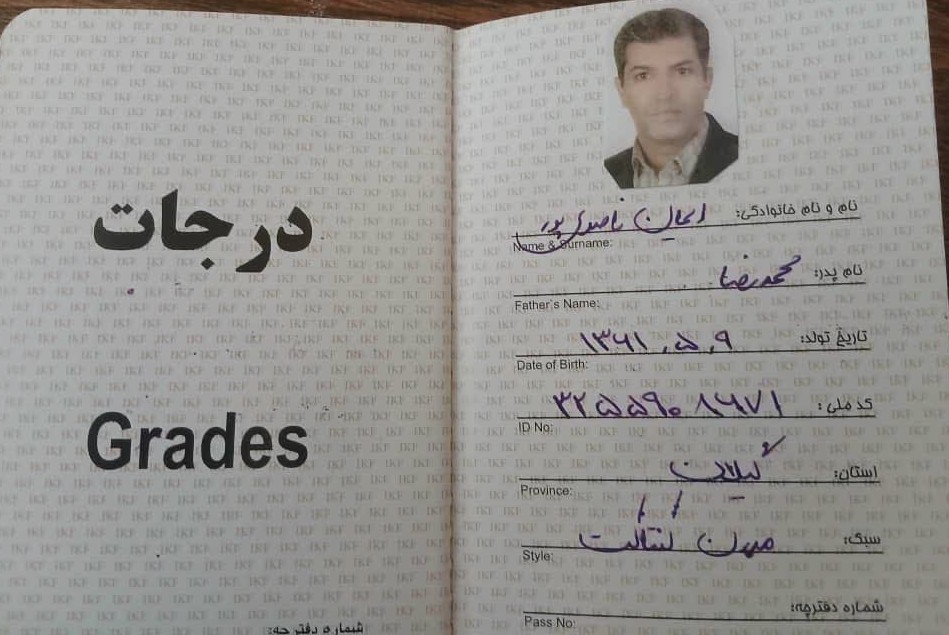 درجات
Grades
نام و نام خانوادگی: ایمان ناصری پور
Name & Surname:
نام پدر: محمدرضا
Father's Name:
تاریخ تولد: ۱۳۶۱,۵,۹
Date of Birth:
کد ملی:
ID No:
استان: گیلان
Province:
سبک:
Style:
شماره دفترچه:
Pass No:
شماره دفترچه: